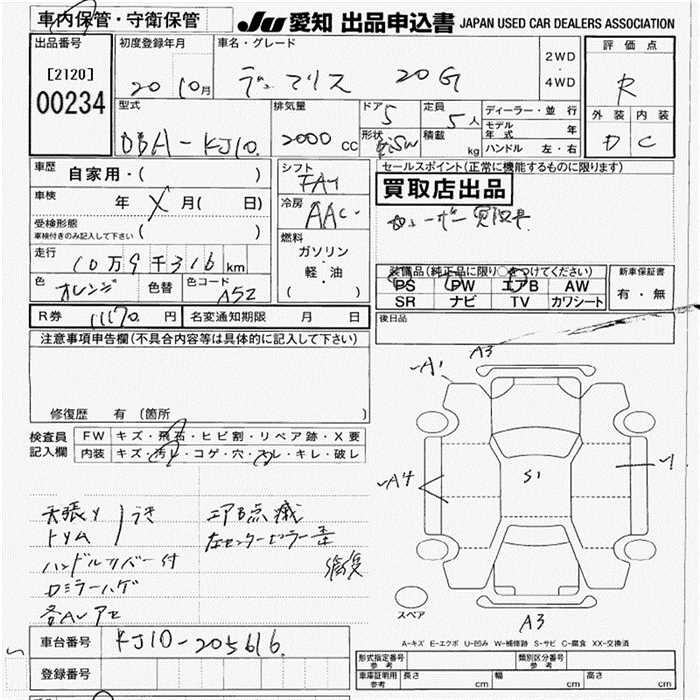 車内保管・守衛保管
JU 愛知 出品申込書 JAPAN USED CAR DEALERS ASSOCIATION
出品番号 初度登録年月 車名・グレード 2WD ・ 4WD 評価点
[2120] 00234
20 10月 デュアリス 20G R
型式 排気量 ドア 5 定員 5人 ディーラー・並行 外装 内装
DBA-KJ10 2000cc 形状 5SW 積載 kg モデル年式 年 D C
ハンドル 左・右
車歴 自家用・( ) シフト FAT セールスポイント(正常に機能するものに限ります)
車検 年 X 月( 日) 冷房 AAC 買取店出品
受検形態 ( )
車検付きのみ記入して下さい
燃料 ガソリン・軽・油 ( )
走行 10万9千316km
装備品(純正品に限り○をつけてください) 新車保証書
色 オレンジ 色替 色コード A52
PS PW エアB AW 有・無
SR ナビ TV カワシート
R券 11170円 名変通知期限 月 日 後日品
注意事項申告欄(不具合内容等は具体的に記入して下さい)
修復歴 有 (箇所 )
検査員記入欄 FW キズ・飛石・ヒビ割・リペア跡・X要
内装 キズ・汚レ・コゲ・穴・スレ・キレ・破レ
A1 A3
A4 S1
天張り トリム うき
エアB点滅
左センターピラー歪 修復
ハンドルカバー付
ロミラーハゲ
各AW アセ
スペア A3
A-キズ E-エクボ U-凹み W-補修跡 S-サビ C-腐食 XX-交換済
車台番号 KJ10-205616
登録番号
形式指定番号 参考 類別区分番号 参考
車庫証明用 参考 長さ cm 幅 cm 高さ cm